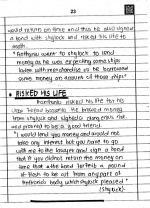 23
would return on time and thus he also signed
a bond with shylock and risked his life to
"Anthonio went to shylock to lend
money as he was expecting some ships
laden with merchandise so he borrowed
some money on account of those ships"
• RISKED HIS LIFE
Anthonio risked his life for his
friend Bassanio. He borrowed money
from shylock and signed a dangerous
and proved to be a good friend.
"I would lend you money and would not
take any interest but you have to go
with me to the lawyer and sign a bond
that if you didn't return the money on
time then the bond forfeit a pound
of flesh to be cut from any part of
Anthonio's body which shylock pleased"
(Shylock).